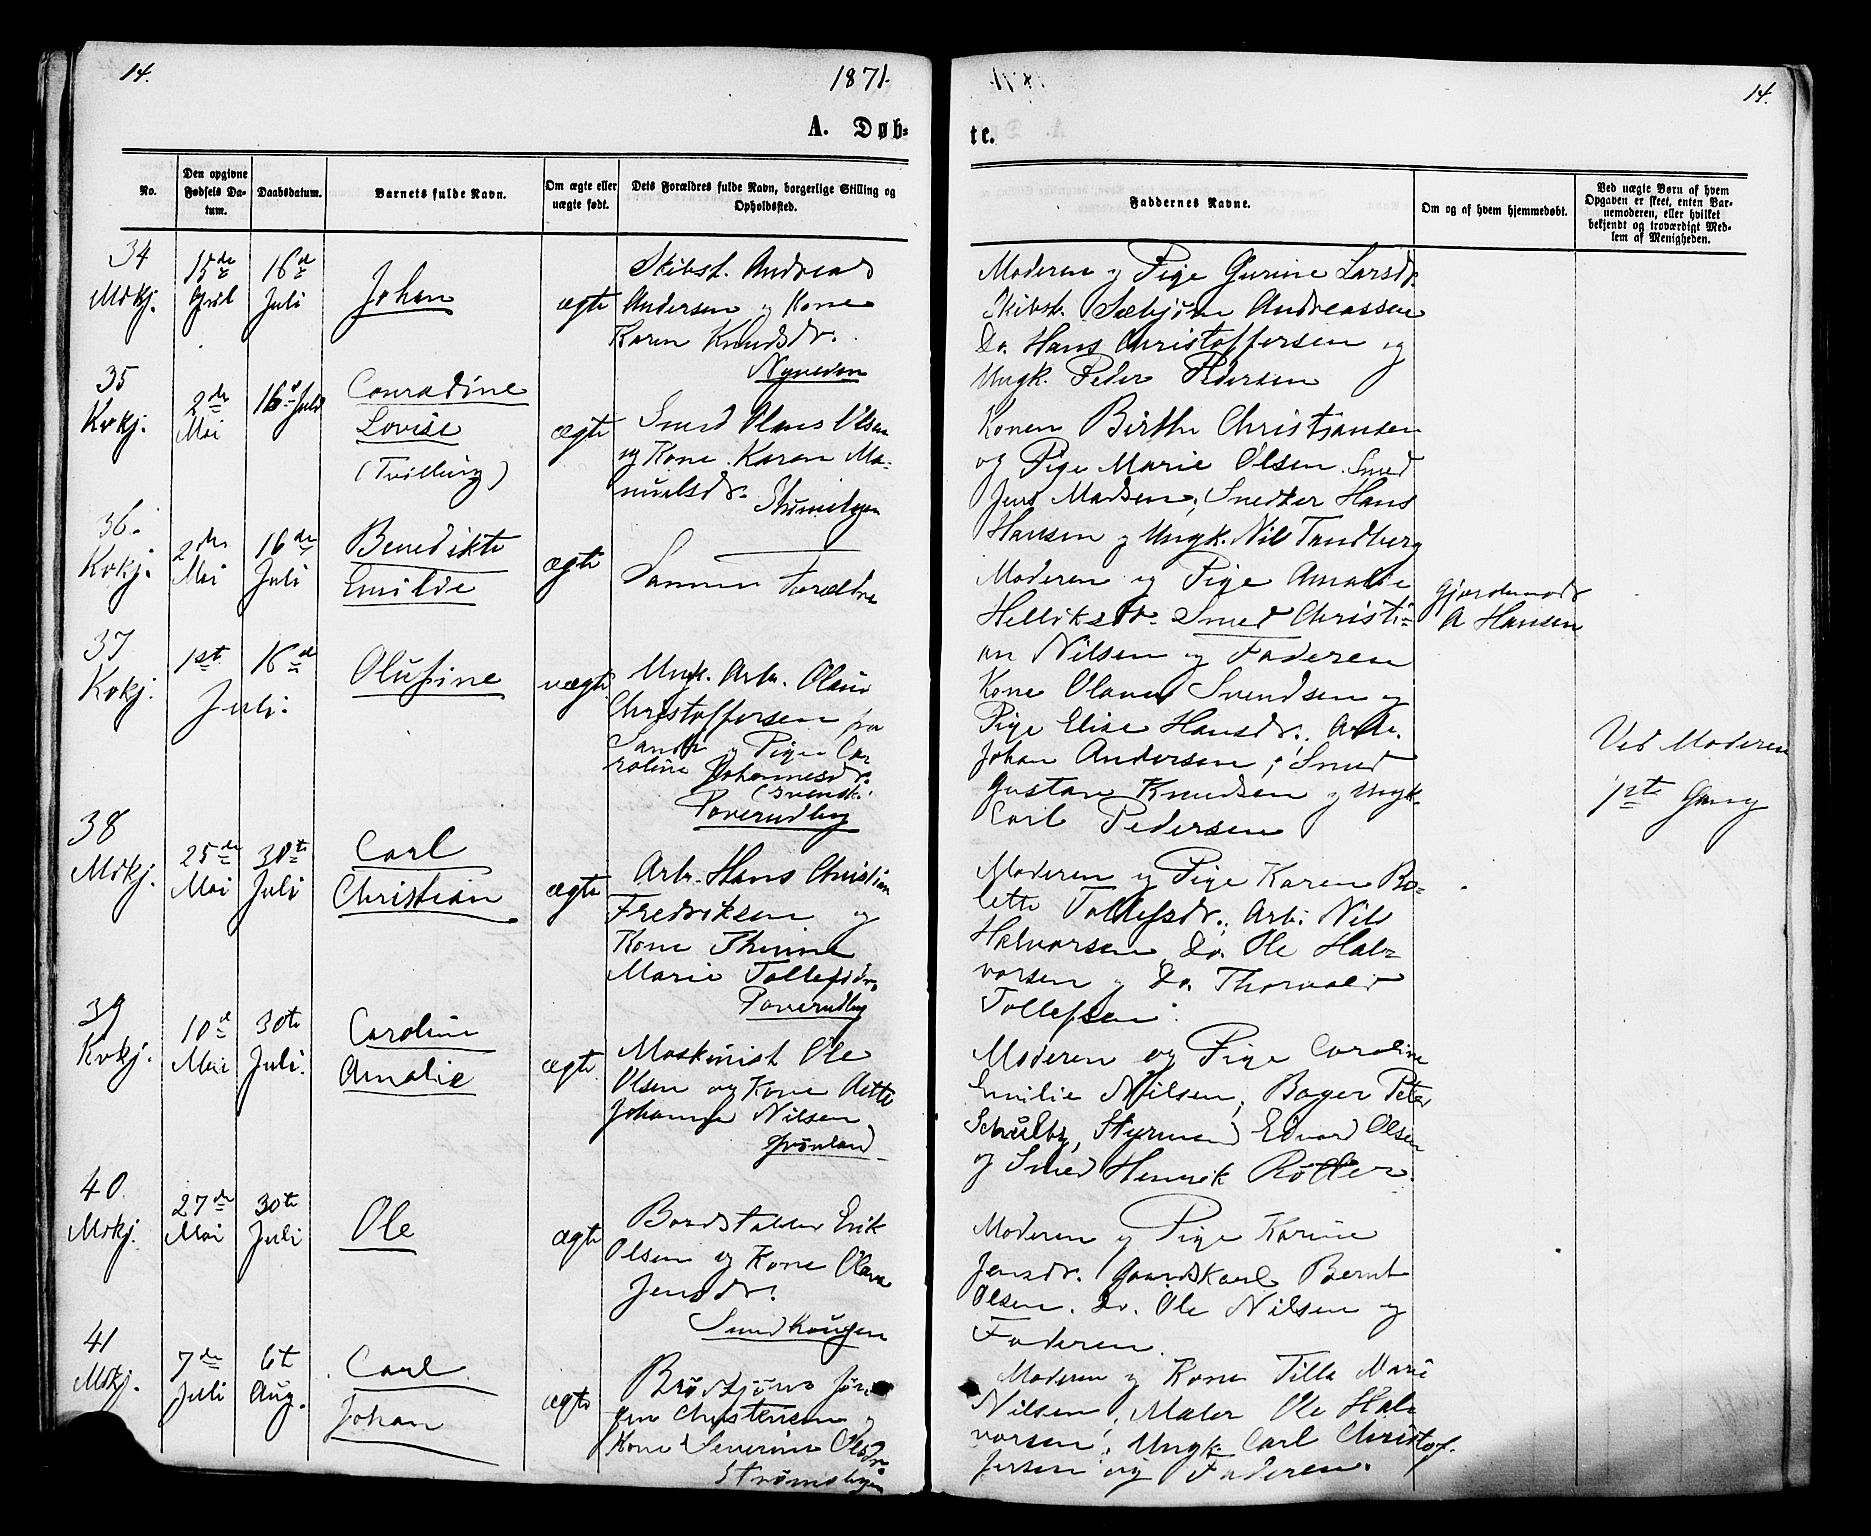 14.
1871.
A. Døb-
No.
Den opgivne Fødsels Da-tum.
Daabsdatum.
Barnets fulde Navn.
Om ægte eller uægte født.
Dets Forældres fulde Navn, borgerlige Stilling og Opholdssted.
34
Mdkj.
15de
April
16de
Juli
Johan
ægte
Skibst. Andreas
Andersen og Kone
Karen Knudsdr.
35
Kvkj.
2de
Mai
16de Juli
Conradine
Lovise
(Tvilling)
ægte
Smed Olaus Olsen
og Kone Karen Ma-
nuelsdr.
36.
Kvkj.
2den
Mai
16de
Juli
Benedikte
Emilde
ægte
Samme Forældre
37
Kvkj.
1ste
Juli.
16de
Olufine
uægte
Ungk. Arb. Olaus
Christoffersen fra
Sande og Pige Ca-
roline Johannesdr.
(svensk)
Poverudbyg
38
Mdkj.
25de
Mai
30te
Juli
Carl
Christian
ægte
Arb. Hans Christian
Fredriksen og
Kone Thrine
Marie Tollefsdr.
Poverudbyg
39
Kvkj.
10de
Mai
30te
Juli.
Caroline
Amalie
ægte
Maskinist Ole
Olsen og Kone Aette
Johanne Nilsen
Grønland
40
Mdkj.
27de
Mai
30te
Juli
Ole
ægte
Bordstabler Erik
Olsen og Kone Olava
Jensdr.
Sundhougen
41
Mdkj.
7de
Juli
6te
Aug.
Carl
Johan
ægte
Jør-
gen Christensen og
Kone Severine Olsdr.
Strømsbyen
14.
te.
Faddernes Navne.
Om og af hvem hjemmedøbt.
Ved uægte Børn af hvem
Opgaven er skeet, enten Bar-
nemoderen, eller hvilket
bekjendt og troværdigt Med-
lem af Menigheden.
Moderen og Pige Gurine Larsdr.
Skibst. Sæbjørn Andreassen
Do. Hans Christoffersen og
Ungk. Peder Pedersen
Konen Birthe Christiansen
og Pige Marie Olsen. Smed
Jens Madsen, Snedker Hans
Hansen og Ungk. Nils Tandberg
Moderen og Pige Amalie
Helliksdr. Smed Christi-
an Nilsen og Faderen
Gjordemoder
A Hansen
Kone Olava Svendsen og
Pige Elise Hansdr., Arb.
Johan Andersen, Smed
Gustav Knudsen og Ungk.
Carl Pedersen
Ved Moderen
1ste Gang
Moderen og Pige Karen Bo-
lette Tollefsdr., Arb. Nils
Halvorsen, Do. Ole Hal-
vorsen og Do. Thorvald
Tollefsen.
Moderen og Pige Caroline
Emilie Nilsen, Bager Peter
Schultz, Styrmand Edvard Olsen
og Smed Henrik Røller.
Moderen og Pige Karine
Jensdr. Gaardskarl Bernt
Olsen. Do. Ole Nilsen og
Faderen.
Moderen og Kone Tilla Marie
Nilsen, Maler Ole Hal-
vorsen, Ungk. Carl Christof-
fersen og Faderen.